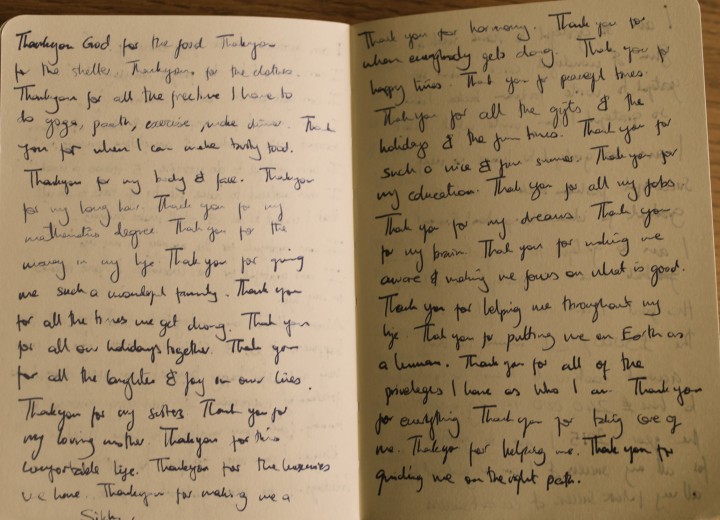 Thankyou God for the food Thankyou
for the shelter. Thankyou for the clothes.
Thankyou for all the freetime I have to
do yoga, paath, exercise, make dinner. Thank
you for when I can make tasty food.
Thankyou for my body & face. Thankyou
for my long hair. Thank you for my
mathematics degree. Thank you for the
money in my life. Thank you for giving
me such a wonderful family. Thank you
for all the times we get along. Thank you
for all our holidays together. Thank you
for all the laughter & joy in our lives.
Thankyou for my sisters Thank you for
my loving mother. Thankyou for this
comfortable life. Thankyou for the luxuries
we have. Thankyou for making me a
Sikh.
Thank you for harmony. Thank you for
when everybody gets along. Thank you for
happy times. Thank you for peaceful times.
Thank you for all the gifts & the
holidays & the fun times. Thank you for
such a nice & fun summer. Thank you for
my education. Thank you for all my jobs
Thank you for my dreams. Thank you
for my brain. Thank you for making me
aware & making me focus on what is good.
Thank you for helping me throughout my
life. Thank you for putting me on Earth as
a human. Thank you for all of the
privileges I have as who I am. Thank you
for everything Thank you for taking care of
me. Thankyou for helping me. Thank you for
guiding me on the right path.